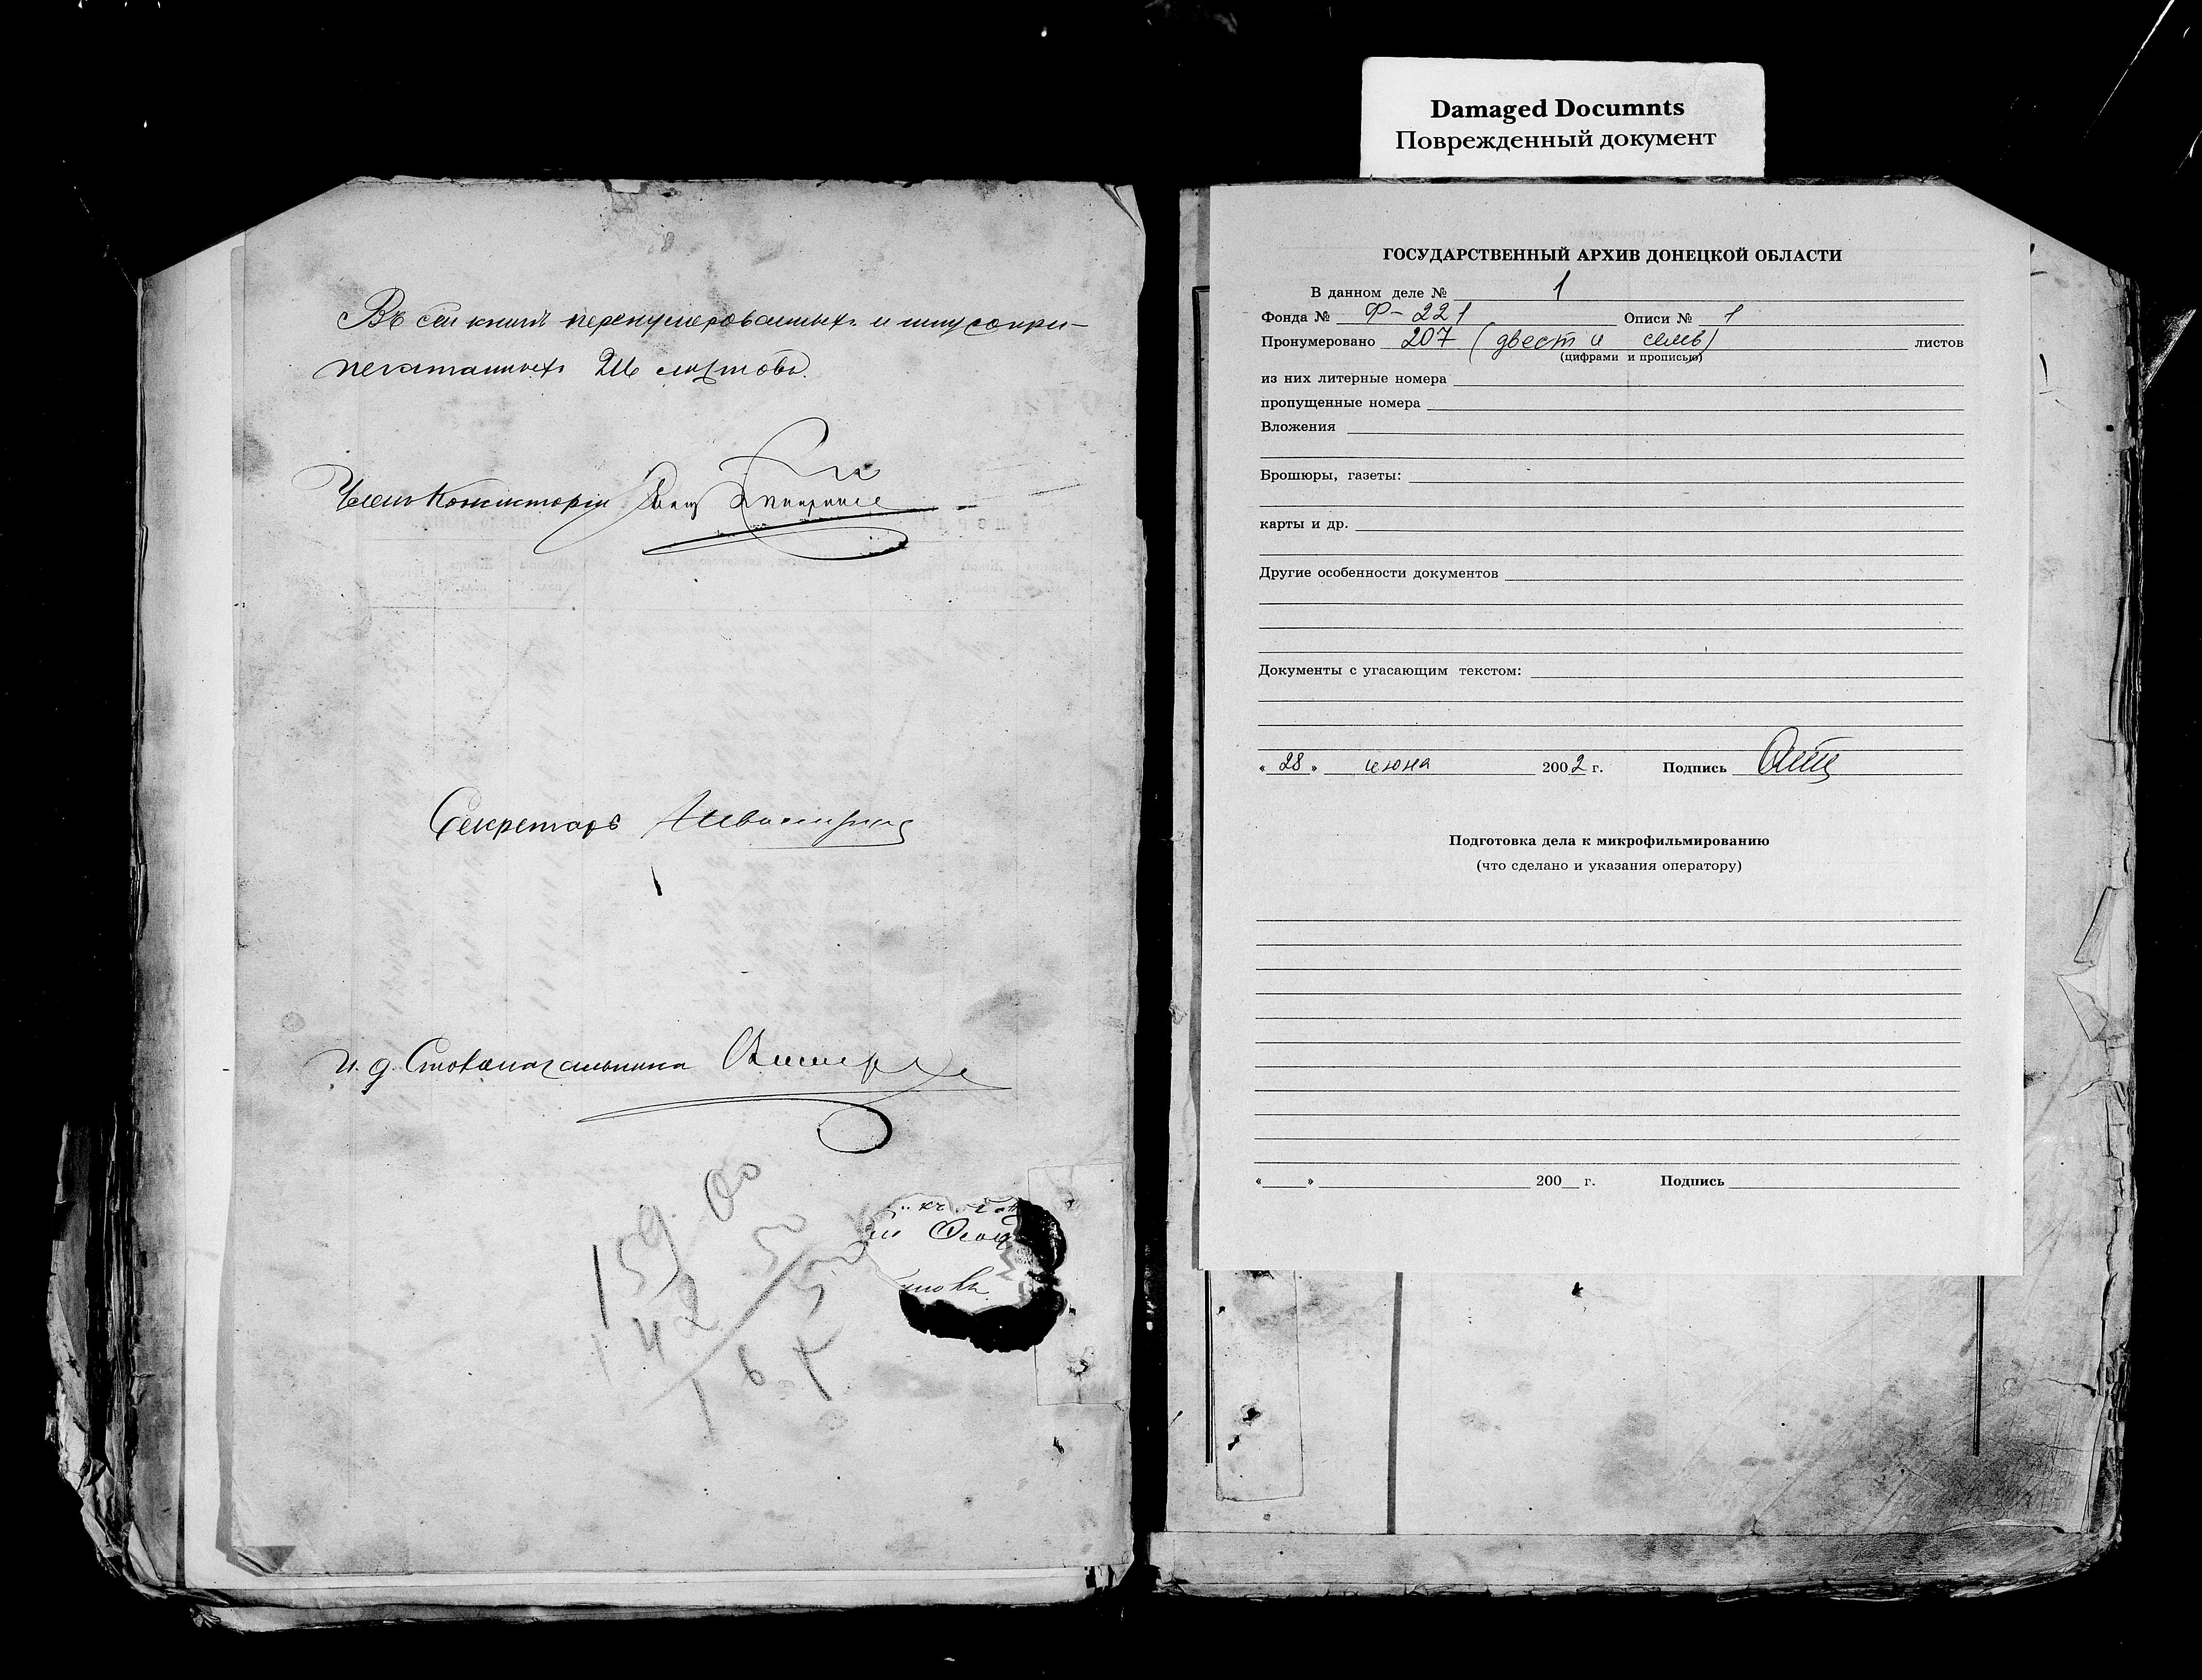 Damaged Documnts
Поврежденный документ
Въ сей книгѣ перенумерованныхъ и шнуроприпе-
печатанныхъ листовъ.
Членъ Консисторіи
Секретарь
И. д. Столоначальника
159 00
142 50
16 5
ГОСУДАРСТВЕННЫЙ АРХИВ ДОНЕЦКОЙ ОБЛАСТИ
В данном деле № 1
Фонда № Ф-221 Описи № 1
Пронумеровано 207 (двести семь) листов
(цифрами и прописью)
из них литерные номера
пропущенные номера
Вложения
Брошюры, газеты:
карты и др.
Другие особенности документов
Документы с угасающим текстом:
« 28 » июня 2002 г. Подпись
Подготовка дела к микрофильмированию
(что сделано и указания оператору)
« » 200 г. Подпись